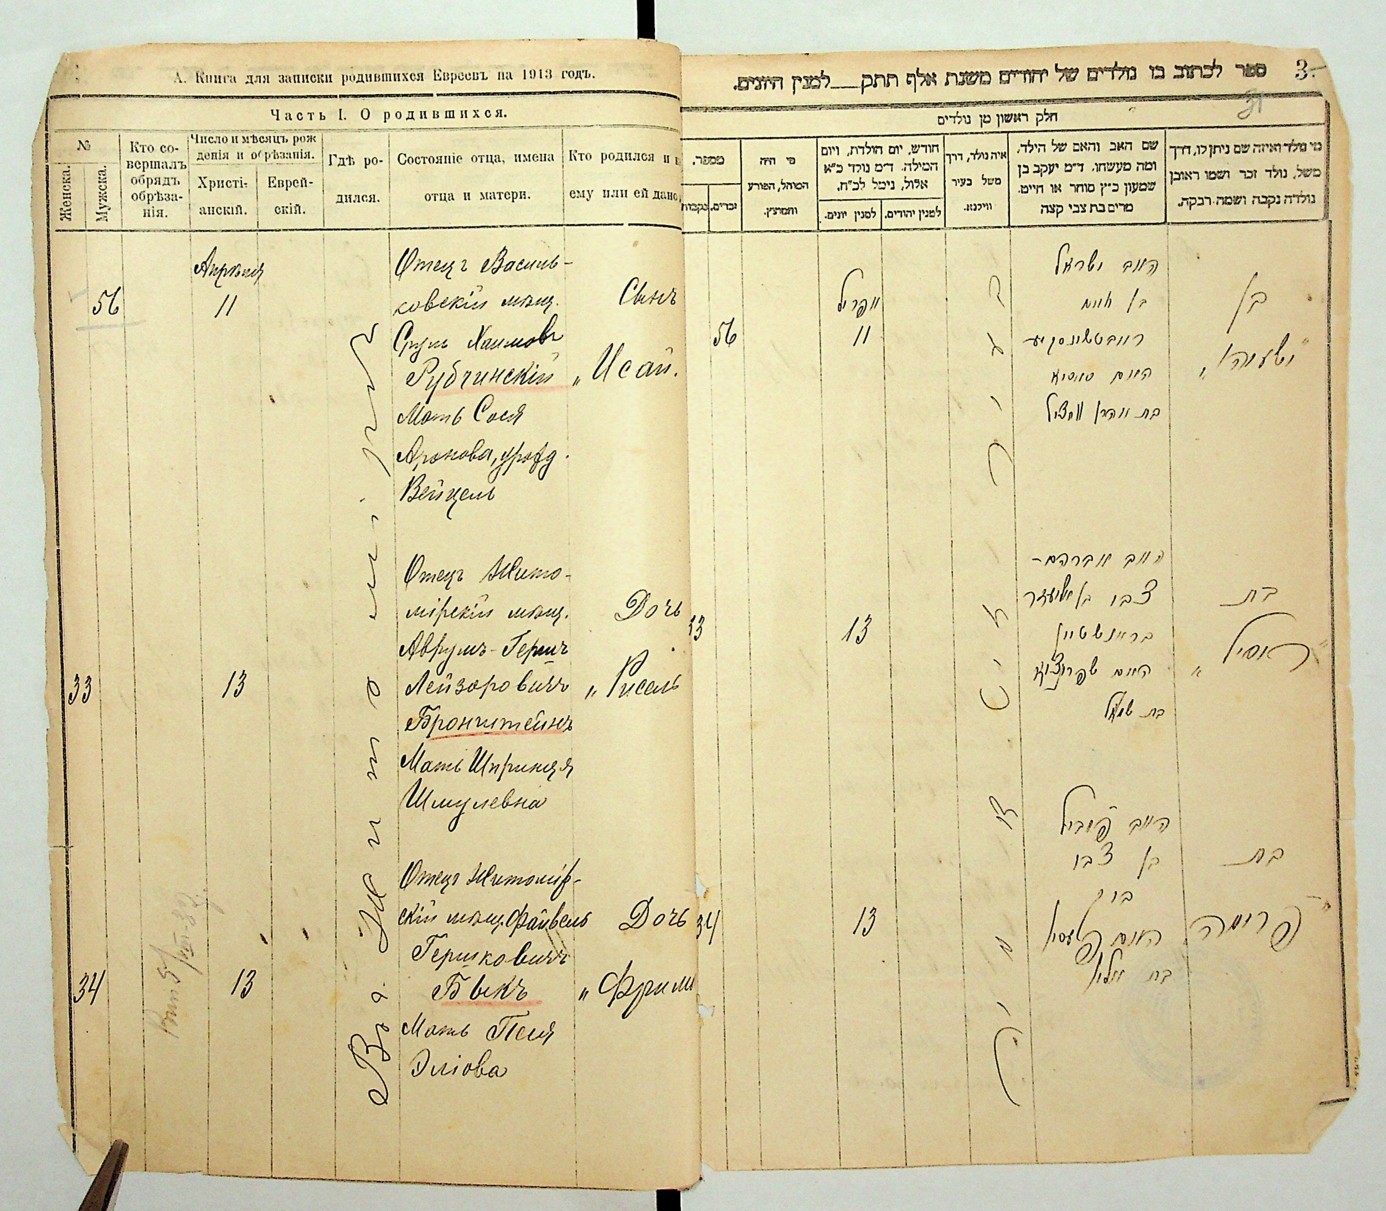 А. Книга для записки родившихся Евреевъ на 1913 годъ.
Часть I. О родившихся.
№
Женска.
Мужска.
Кто со-
вершалъ
обрядъ
обрѣза-
нія.
Число и мѣсяцъ рож
денія и обрѣзанія.
Христі-
анскій.
Еврей-
скій.
Гдѣ ро-
дился.
Состояніе отца, имена
отца и матери.
Кто родился и
ему или ей дано
56
Апрѣля
11
Отецъ Василь-
ковскій мѣщ.
Сруль Хаимовъ
Рубчинскій
Мать Сося
Аронова, урожд.
Вейцель
Сынъ
„Исай.
33
13
Отецъ Жито-
мірскій мѣщ.
Аврумъ-Гершъ
Лейзоровичъ
Бронштейнъ
Мать Шпринця
Шмулевна
Дочь
„Рисель
34
13
Отецъ Житомір-
скій мѣщ. Файвель
Гершковичъ
Быкъ
Мать Песя
Эліова
Дочь
„Фрима
Въ г. Житомірѣ
ספר לכתוב בו נולדים של יהודים משנת אלף תתק___למנין היונים.
3
31
חלק ראשון מן נולדים
מספר.
נקבות
זכרים.
מי היה
המוהל, הפורע
והמוצץ.
חודש, יום הולדת, ויום
המילה. ד״מ נולד כ״א
אלול, נימל לכ״ח.
למנין יונים.
למנין יהודים.
איה נולד, דרך
משל בעיר
ווילנא.
שם האב והאם של הילד,
ומה מעשהו. ד״מ יעקב בן
שמעון כ״ץ סוחר או חייט.
מרים בת צבי קצה
מי נולד ואיזה שם ניתן לו, דרך
משל, נולד זכר ושמו ראובן
נולדה נקבה ושמה רבקה.
56
אפריל
11
האב ישראל
בן חיים
רובטשינסקי
האם סאסיא
בת אהרן ווייציל
בן
„ישעיהו„
33
13
האב אברהם-
צבי בן אליעזר
בראנשטיין
האם שפרינציא
בת שמואל
בת
„ראסיל„
34
13
האב פייביל
בן צבי
ביק
האם פעסיא
בת אליו
בת
„פרימה„
זיטאמיר